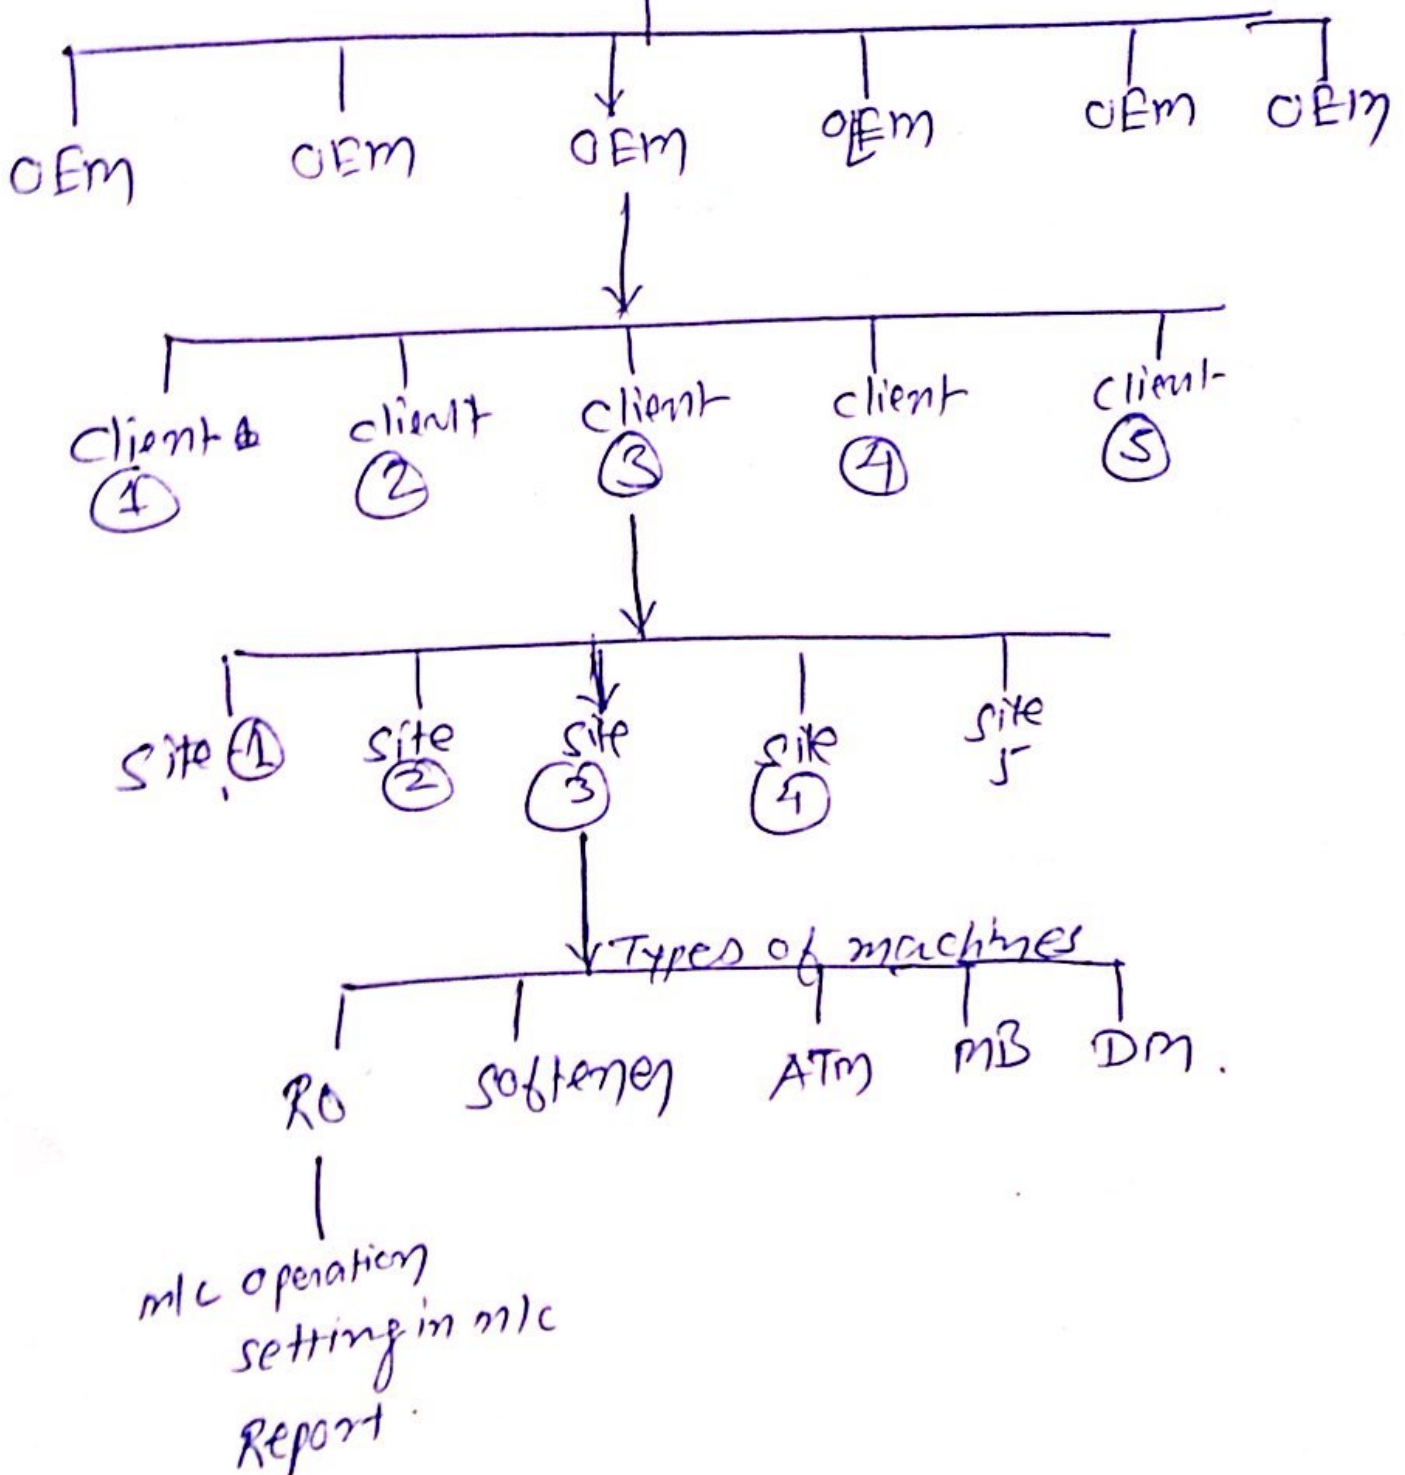 OEM OEM OEM OEM OEM OEM
Client client client client client
1 2 3 4 5
Site 1 site site site site
2 3 4 5
Types of machines
RO softener ATM MB DM.
m/c operation
setting in m/c
Report